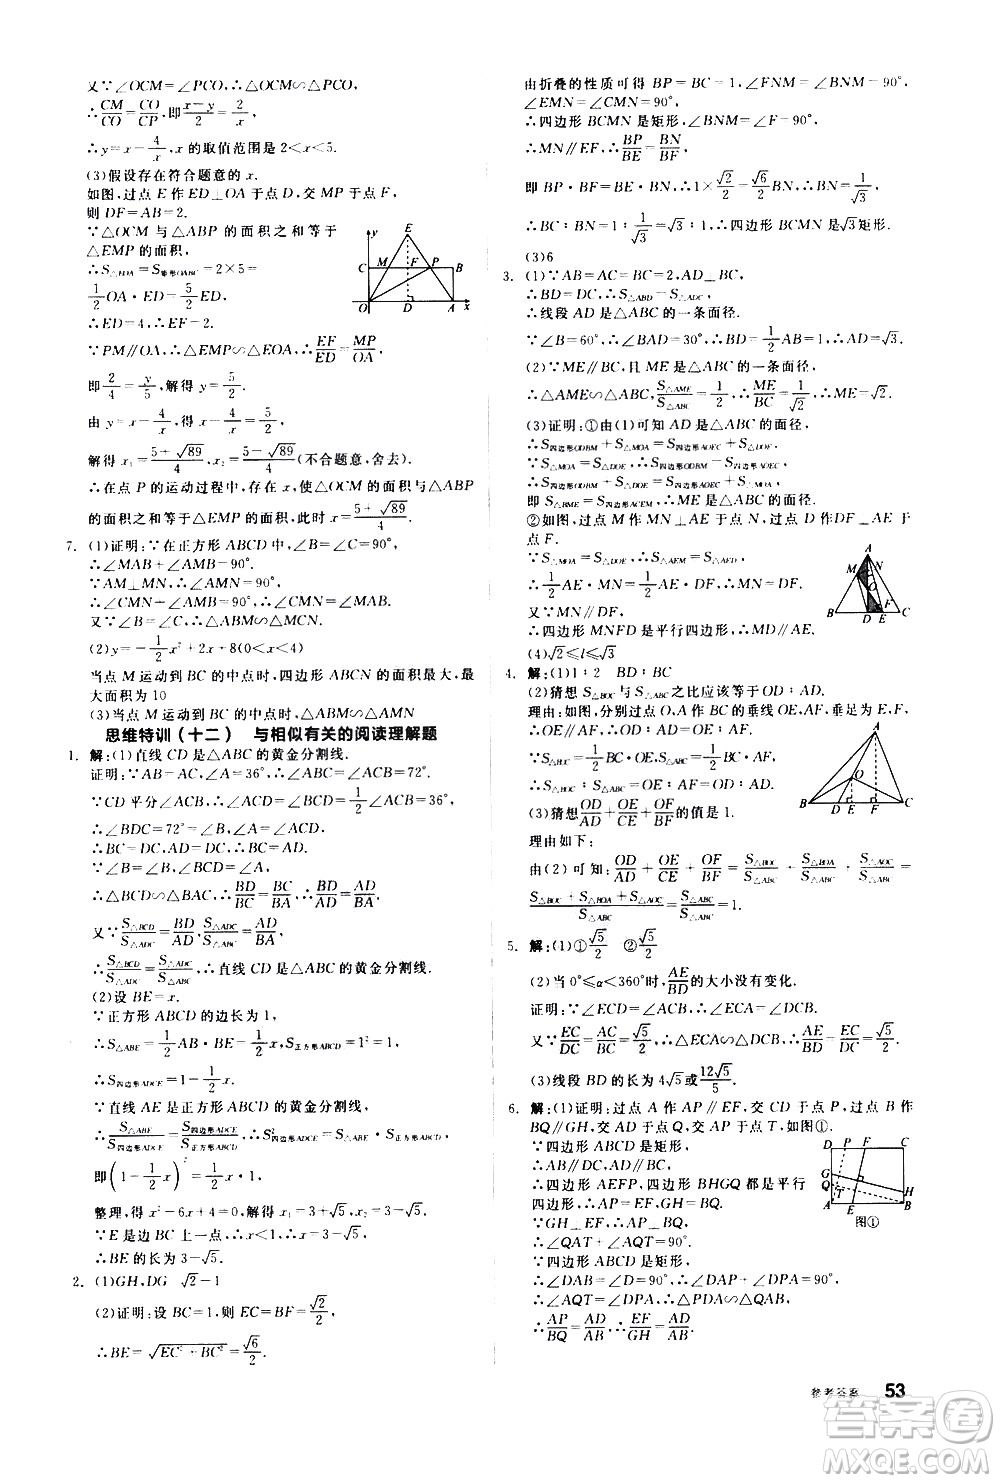 又∵∠OCM=∠PCO,∴△OCM∽△PCO,
∴CM/CO=CO/CP,即(x-y)/2=2/x,
∴y=x-4/x,x的取值范围是2<x<5.
(3)假设存在符合题意的x.
如图,过点E作ED⊥OA于点D,交MP于点F,
则DF=AB=2.
∵△OCM与△ABP的面积之和等于
△EMP的面积,
∴S△EOA=S矩形OABC=2×5=
1/2OA·ED=5/2ED,
∴ED=4,∴EF=2.
∵PM∥OA,∴△EMP∽△EOA,∴EF/ED=PM/OA,
即2/4=y/5,解得y=5/2,
由y=x-4/x,得x-4/x=5/2,
解得x₁=(5+√89)/4,x₂=(5-√89)/4(不合题意,舍去).
∴在点P的运动过程中,存在x,使△OCM与△ABP
的面积之和等于△EMP的面积,此时x=(5+√89)/4.
7. (1)证明:∵在正方形ABCD中,∠B=∠C=90°,
∴∠MAB+∠AMB=90°.
∵AM⊥MN,∴∠AMN=90°,
∴∠CMN+∠AMB=90°,∴∠CMN=∠MAB.
又∵∠B=∠C,∴△ABM∽△MCN.
(2)y=-1/2x²+2x+8(0<x<4)
当点M运动到BC的中点时,四边形ABCN的面积最大,最
大面积为10
(3)当点M运动到BC的中点时,△ABM∽△AMN
思维特训(十二) 与相似有关的阅读理解题
1. 解:(1)直线CD是△ABC的黄金分割线.
证明:∵AB=AC,∠A=36°,∴∠B=∠ACB=72°.
∵CD平分∠ACB,∴∠BCD=1/2∠ACB=36°,
∴∠BDC=72°=∠B,∠BCD=∠A,
∴BC=CD,∠ACD=∠A,∴AD=CD=BC.
∵∠B=∠B,∠BCD=∠A,
∴△BCD∽△BAC,∴BD/BC=BC/AB,∴BD/AD=AD/AB.
又∵S△BCD/S△ADC=BD/AD,S△ADC/S△ABC=AD/BA,
∴S△BCD/S△ADC=S△ADC/S△ABC,∴直线CD是△ABC的黄金分割线.
(2)设BE=x.
∵正方形ABCD的边长为1,
∴S△ABE=1/2AB·BE=1/2x,S正方形ABCD=1²=1,
∴S四边形ADCE=1-1/2x.
∵直线AE是正方形ABCD的黄金分割线,
∴S△ABE/S四边形ADCE=S四边形ADCE/S正方形ABCD,∴S²四边形ADCE=S△ABE·S正方形ABCD,
即(1-1/2x)²=1/2x·1,
整理,得x²-6x+4=0,解得x₁=3+√5,x₂=3-√5.
∵E是边BC上一点,∴x<1,∴x=3-√5,
∴BE的长为3-√5.
2. (1)GH,DG √2-1
(2)证明:设BC=1,则EC=BF=√2/2,
∴BE=√(EC²+BC²)=√6/2.
由折叠的性质可得BP=BC=1,∠FNM=∠BNM=90°,
∠EMN=∠CMN=90°.
∵四边形BCEF是矩形,∴∠F=90°,
∴MN∥EF,∴BP/BE=BN/BF,
即BP·BF=BE·BN,∴1×√2/2=√6/2BN,∴BN=1/√3,
∴BC∶BN=1∶1/√3=√3∶1,∴四边形BCMN是√3矩形.
(3)6
3. (1)∵AB=AC=BC=2,AD⊥BC,
∴BD=DC=1,∴S△ABD=S△ADC,
∴线段AD是△ABC的一条面径.
∵∠B=60°,∠BAD=30°,∴BD=1/2AB=1,∴AD=√3.
(2)∵ME∥BC,且ME是△ABC的一条面径,
∴△AME∽△ABC,S△AME/S△ABC=1/2,∴ME/BC=1/√2,∴ME=√2.
(3)证明:①由(1)可知AD是△ABC的面径,
∴S四边形ODBM+S△MOA=S四边形AOEC+S△DOE.
∵S△MOA=S△DOE,∴S四边形ODBM=S四边形AOEC,
∴S四边形ODBM+S△DOE=S四边形AOEC+S△MOA,
即S△BME=S四边形ACEM,∴ME是△ABC的面径.
②如图,过点M作MN⊥AE于点N,过点D作DF⊥AE于
点F.
∵S△MOA=S△DOE,∴S△AEM=S△AED,
∴1/2AE·MN=1/2AE·DF,∴MN=DF.
又∵MN∥DF,
∴四边形MNFD是平行四边形,∴DM∥AE.
(4)√2≤l≤√3
4. 解:(1)1∶2 BD∶BC
(2)猜想S△BOC与S△ABC之比应该等于OD∶AD.
理由:如图,分别过点O,A作BC的垂线OE,AF,垂足为E,F,
∴OE∥AF,∴OD∶AD=OE∶AF.
∵S△BOC=1/2BC·OE,S△ABC=1/2BC·AF,
∴S△BOC∶S△ABC=OE∶AF=OD∶AD.
(3)猜想OD/AD+OE/CE+OF/BF的值是1.
理由如下:
由(2)可知,OD/AD+OE/CE+OF/BF=S△BOC/S△ABC+S△BOA/S△ABC+S△AOC/S△ABC=
(S△BOC+S△BOA+S△AOC)/S△ABC=S△ABC/S△ABC=1.
5. 解:(1)①√5/2 ②√5/2
(2)当0°≤α<360°时,AE/BD的大小没有变化.
证明:∵∠ECD=∠ACB,∴∠ECA=∠DCB.
又∵EC/DC=AC/BC=√5/2,∴△ECA∽△DCB,∴AE/BD=EC/DC=√5/2.
(3)线段BD的长为4√5或12√5/5.
6. 解:(1)证明:过点A作AP∥EF,交CD于点P,过点B作
BQ∥GH,交AD于点Q,交AP于点T,如图①.
∵四边形ABCD是矩形,
∴AB∥DC,AD∥BC,
∴四边形AEFP、四边形BHGQ是平行
四边形,∴AP=EF,GH=BQ.
∵GH⊥EF,∴AP⊥BQ,
∴∠QAT+∠AQT=90°.
∵四边形ABCD是矩形,
∴∠DAB=∠D=90°,∴∠DAP+∠DPA=90°,
∴∠AQT=∠DPA,∴△PDA∽△QAB,
∴AP/BQ=AD/AB,∴EF/GH=AD/AB.
y E C M F P B O D A x
A M N O B D E F C
A O B D E F C
D P F C G Q H T A E B
图①
参考答案 53
答案圈
MXQE.COM